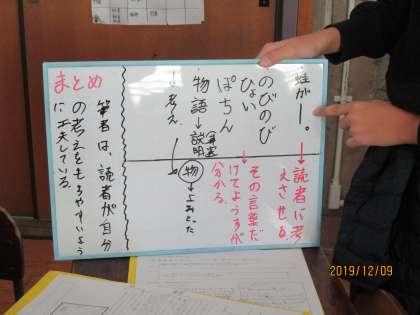 蛙がー。→読者に考
えさせる
のびのび
ひょい
ぽちん
その言葉だ
けでようすが
分かる
物語→説明
事実
↓考え
物→よみとった
まとめ
筆者は、読者が自分
の考えをもちやすいよう
に工夫している。
2019/12/09